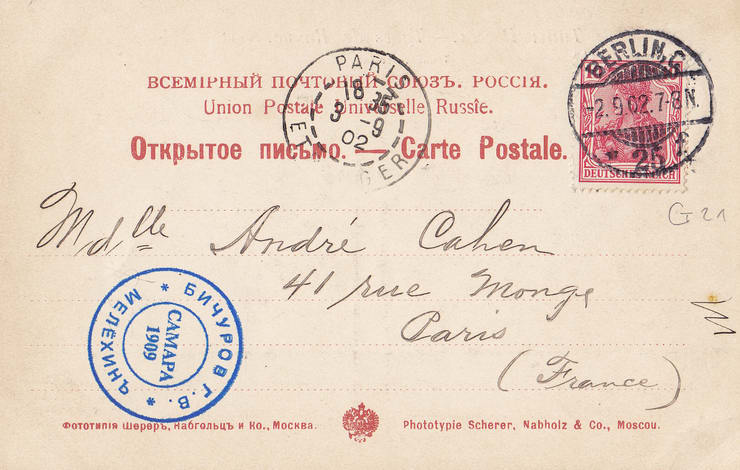 ВСЕМІРНЫЙ ПОЧТОВЫЙ СОЮЗЪ. РОССІЯ.
Union Postale Universelle Russie.
Открытое письмо. — Carte Postale.
PARIS
18 35
3 -9
02
ETRANGER
BERLIN.C.
-2.9.02.7-8N.
* 25
DEUTSCHES REICH
G 21
Mdlle André Cahen
41 rue Monge
Paris
(France)
БИЧУРОВ Г. В. *
МЕЛЁХИНЪ *
САМАРА
1909
Фототипія Шереръ, Набгольцъ и Ко., Москва.
Phototypie Scherer, Nabholz & Co., Moscou.